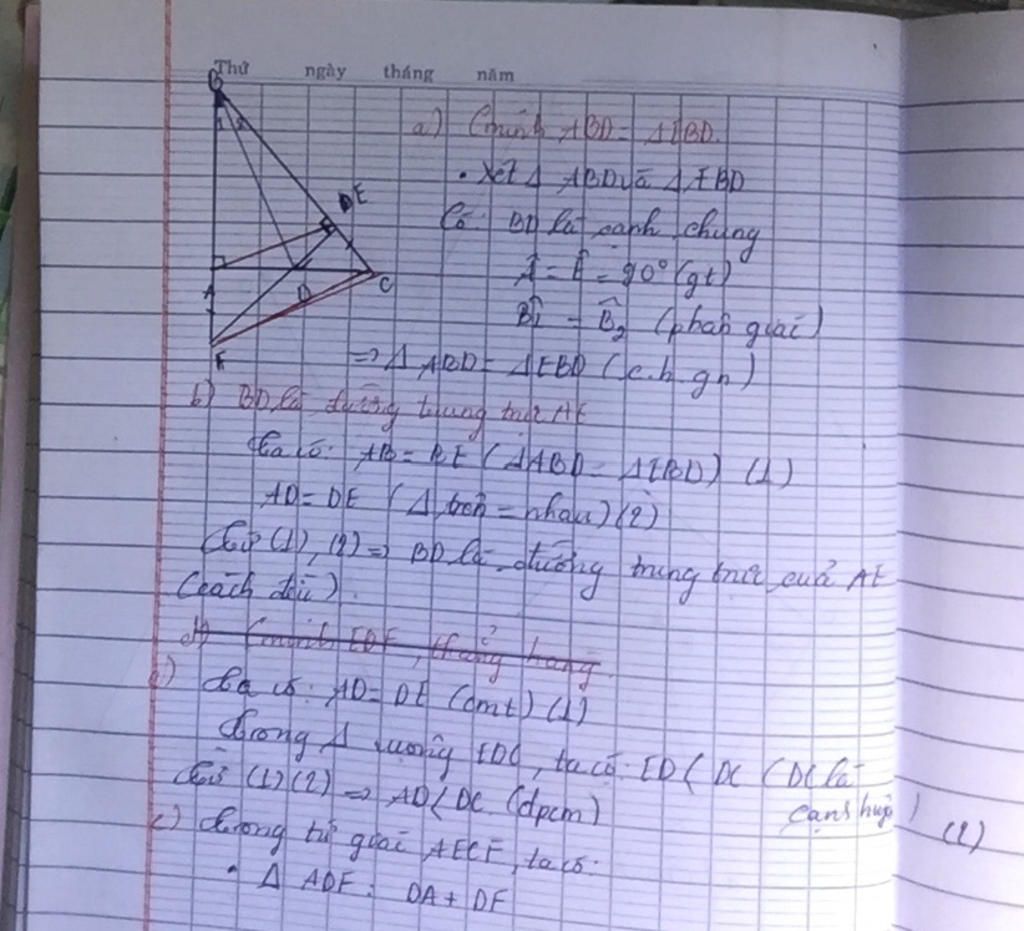 Thứ ngày tháng năm
B
a) Cminh ABD = ΔEBD.
• Xét Δ ABD và Δ EBD
E
Có: BD là cạnh chung
Â = Ê = 90° (gt)
C
A
D
B̂1 = B̂2 (phân giác)
F
=> Δ ABD = ΔEBD (c.h.gn)
b) BD là đường trung trực AE
Ta có: AB = BE (ΔABD = ΔEBD) (1)
AD = DE (Δ trên = nhau) (2)
Từ (1), (2) => BD là đường trung trực của AE
(cách đều).
d) Cminh EDF, thẳng hàng.
Ta có: AD = DE (cmt) (1)
Trong Δ vuông EDC, ta có: ED < DC (DC là
cạnh huyền) (2)
Từ (1) (2) => AD < DC (đpcm)
c) Trong tứ giác AECF, ta có:
• Δ ADF: DA + DF